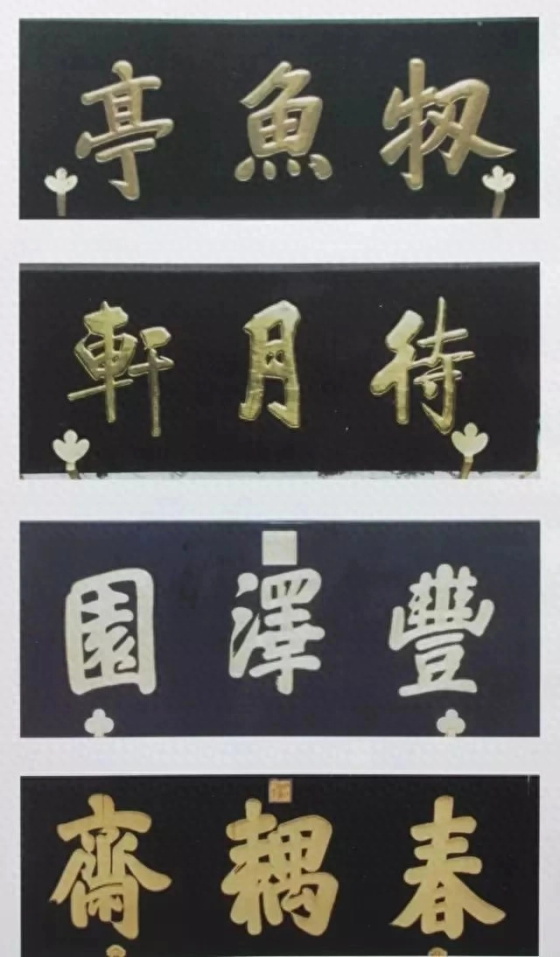 牣魚亭
待月軒
豐澤園
春耦齋